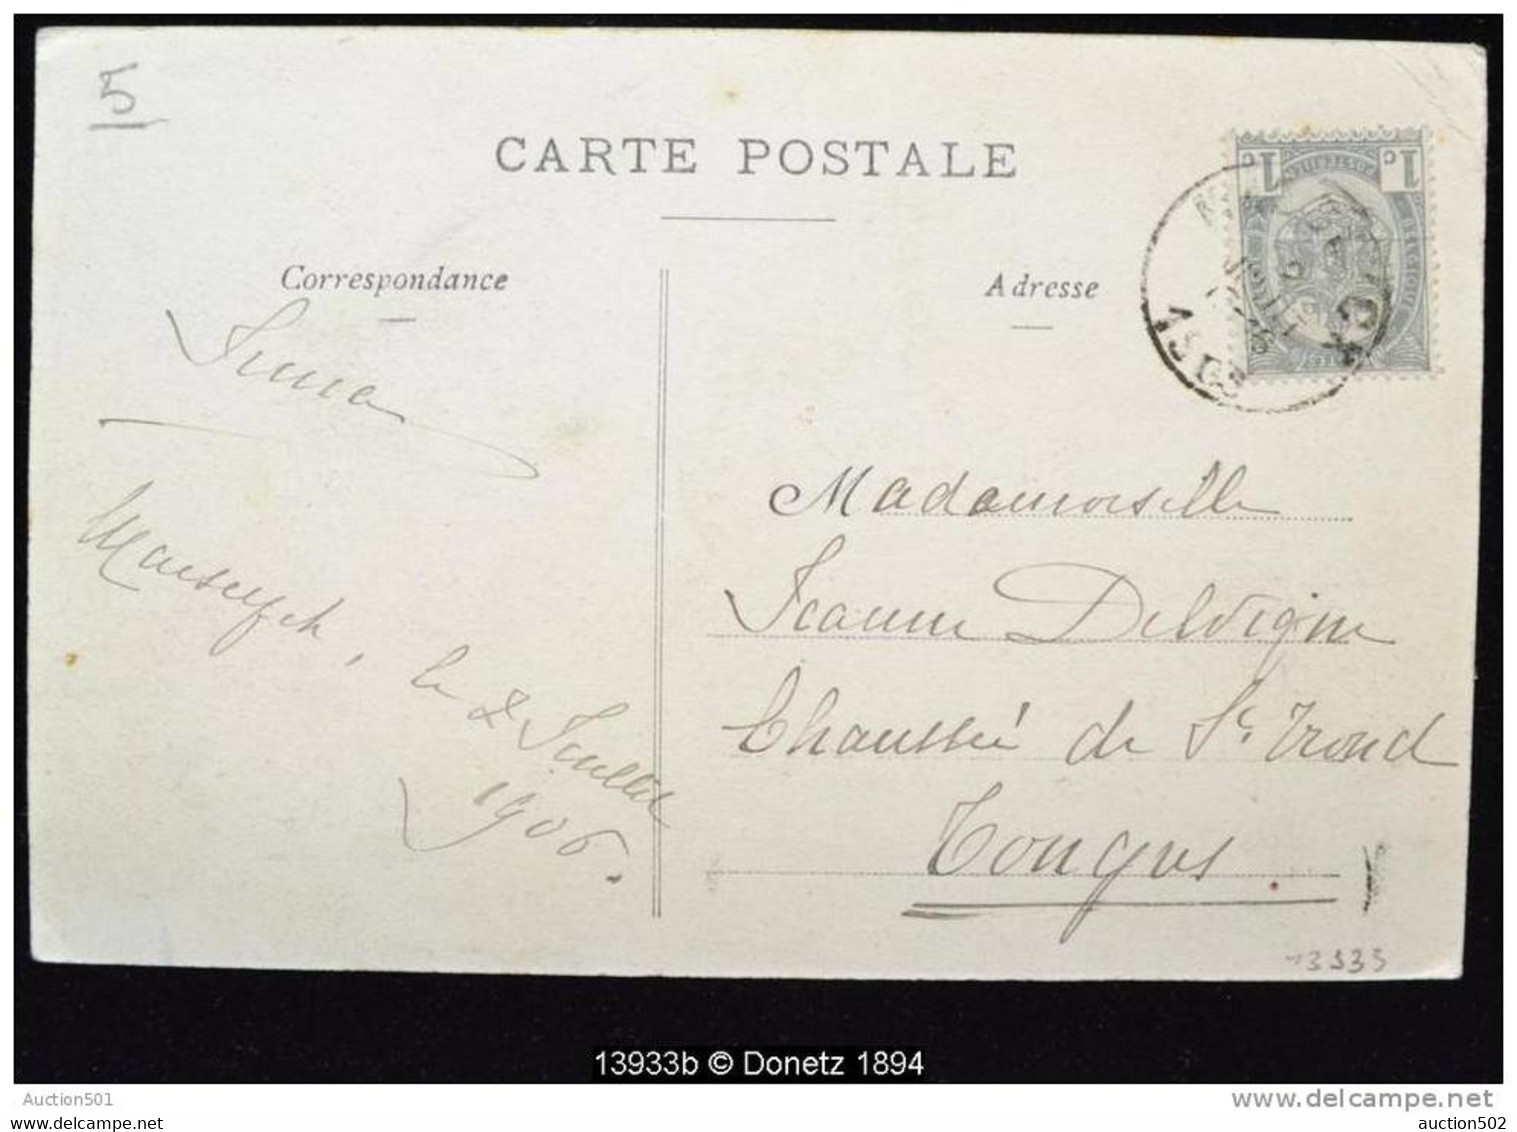 5
CARTE POSTALE
Correspondance
Adresse
1c 1c
Maeseyck, le 2 Juillet
1906.
Mademoiselle
Jeanne Delvigne
Chaussée de St. Trond
Tongres
13933b © Donetz 1894
Auction501
www.delcampe.net
www.delcampe.net
auction502